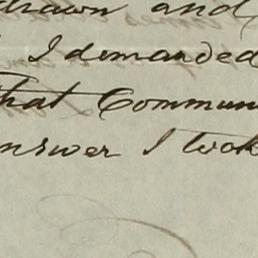 drawn and
I demanded
that Commun
answer I took